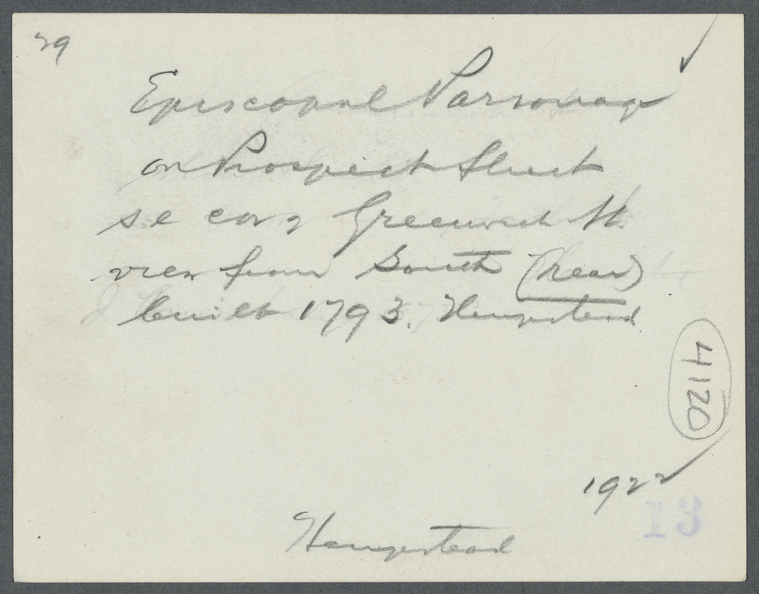 29
Episcopal Parsonage
on Prospect Street
se cor Greenwich St.
view from South (rear)
built 1793. Hempstead
4120
1922
13
Hempstead